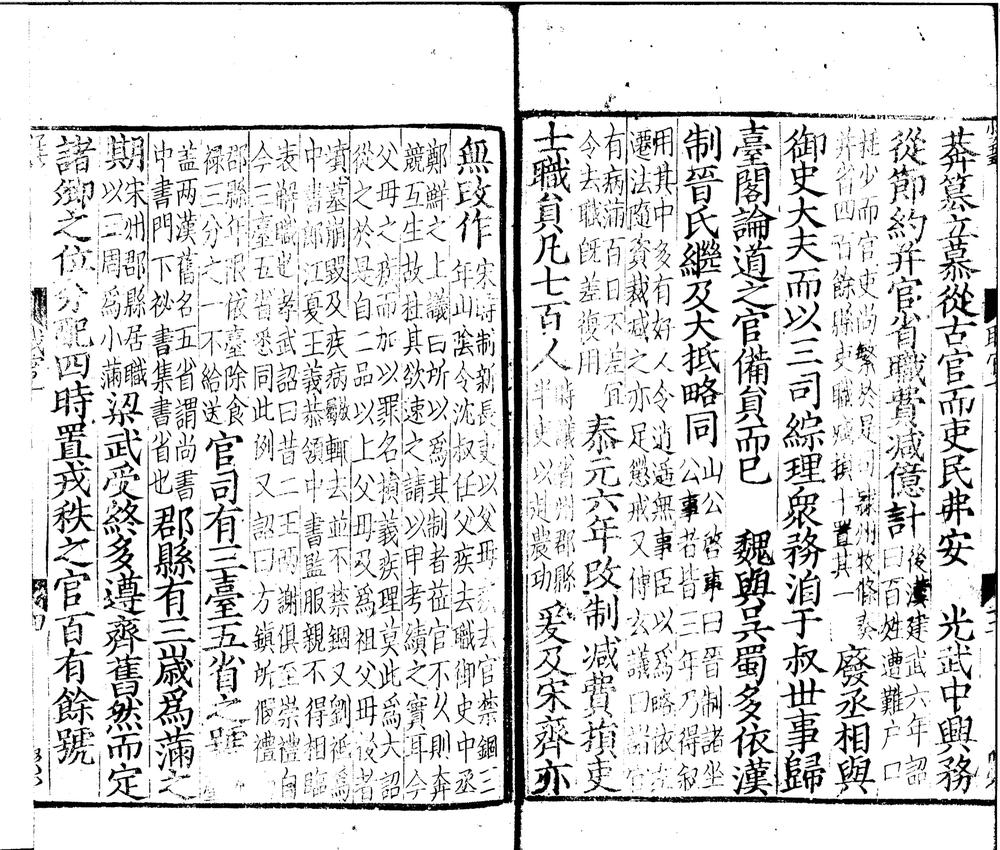 莽篡立慕從古官而吏民弗安　光武中興務
從節約并官省職費減億計
後漢建武六年詔
曰百姓遭難户口
耗少而官吏尚繁於是司隸州牧條奏
并省四百餘縣吏職減損十置其一
廢丞相與
御史大夫而以三司綜理衆務洎于叔世事歸
臺閣論道之官備員而已　魏與吳蜀多依漢
制晉氏繼及大抵略同
山公啓事曰晉制諸坐
公事者皆三年乃得叙
用其中多有好人令逍遥無事臣以爲略依左
遷法隨資裁減之亦足懲戒又傅玄議曰諸官
有病滿百日不差宜
令去職旣差復用
泰元六年改制減費損吏
士職員凡七百人
時議省州郡縣
半吏以赴農功
爰及宋齊亦
無改作
宋時制新長吏以父母疾去官禁錮三
年山陰令沈叔任父疾去職御史中丞
鄭鮮之上議曰所以爲其制者莅官不久則奔
競互生故杜其欲速之請以申考績之實耳今
父母之疾而加以罪名損義疾理莫此爲大詔
從之於是自二品以上父母及爲祖父母後者
墳墓崩毀及疾病輒去並不禁錮又劉祗爲
中書郎江夏王義恭領中書監服親不得相臨
表解職孝武詔曰昔二王兩謝俱至崇禮自
今三臺五省悉同此例又詔曰方鎮所假禮
郡縣年限依臺除食
禄三分之一不給送
官司有三臺五省之號
蓋兩漢舊名五省謂尚書
中書門下祕書集書省也
郡縣有三歲爲滿之
期
宋州郡縣居職
以三周爲小滿
梁武受終多遵齊舊然而定
諸卿之位分配四時置戎秩之官百有餘號